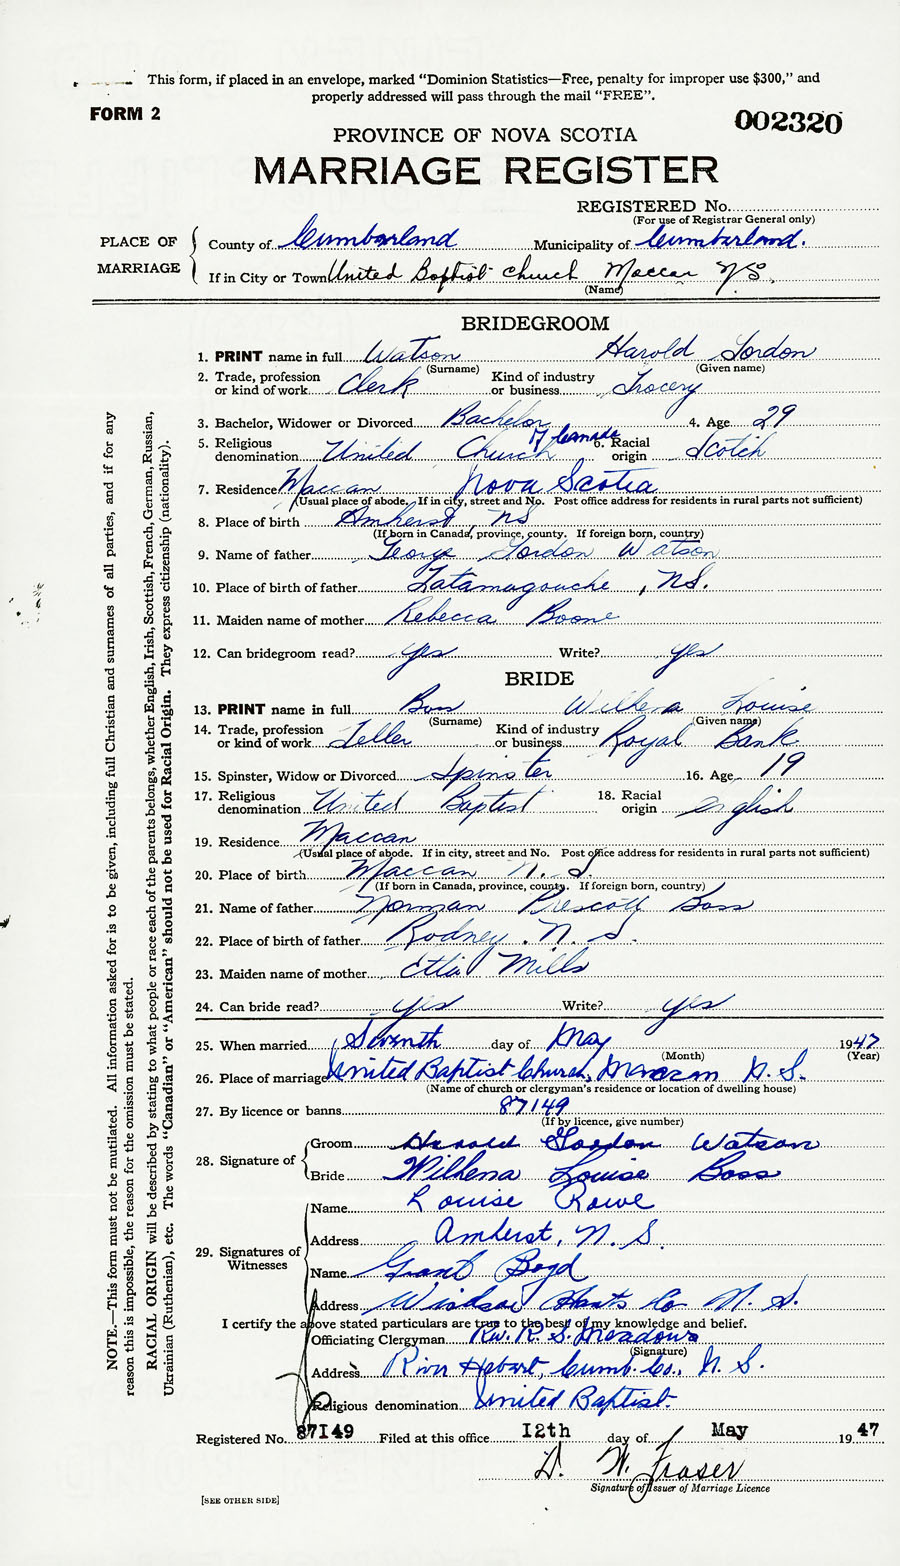 This form, if placed in an envelope, marked “Dominion Statistics—Free, penalty for improper use $300,” and
properly addressed will pass through the mail “FREE”.
FORM 2
002320
PROVINCE OF NOVA SCOTIA
MARRIAGE REGISTER
REGISTERED No.
(For use of Registrar General only)
PLACE OF MARRIAGE
County of Cumberland Municipality of Cumberland.
If in City or Town United Baptist Church Maccan N.S.
(Name)
BRIDEGROOM
1. PRINT name in full Watson Harold Gordon
(Surname) (Given name)
2. Trade, profession or kind of work Clerk Kind of industry or business Grocery
3. Bachelor, Widower or Divorced Bachelor 4. Age 29
5. Religious denomination United Church of Canada 6. Racial origin Scotch
7. Residence Maccan Nova Scotia
(Usual place of abode. If in city, street and No. Post office address for residents in rural parts not sufficient)
8. Place of birth Amherst NS
(If born in Canada, province, county. If foreign born, country)
9. Name of father George Gordon Watson
10. Place of birth of father Tatamagouche, N.S.
11. Maiden name of mother Rebecca Boone
12. Can bridegroom read? yes Write? yes
BRIDE
13. PRINT name in full Boss Wilhena Louise
(Surname) (Given name)
14. Trade, profession or kind of work Teller Kind of industry or business Royal Bank
15. Spinster, Widow or Divorced Spinster 16. Age 19
17. Religious denomination United Baptist 18. Racial origin English
19. Residence Maccan
(Usual place of abode. If in city, street and No. Post office address for residents in rural parts not sufficient)
20. Place of birth Maccan N. S.
(If born in Canada, province, county. If foreign born, country)
21. Name of father Norman Prescott Boss
22. Place of birth of father Rodney. N. S.
23. Maiden name of mother Etta Mills
24. Can bride read? yes Write? yes
25. When married Seventh day of May 1947
(Month) (Year)
26. Place of marriage United Baptist Church, Maccan N. S.
(Name of church or clergyman's residence or location of dwelling house)
27. By licence or banns 87149
(If by licence, give number)
28. Signature of
Groom Harold Gordon Watson
Bride Wilhena Louise Boss
29. Signatures of Witnesses
Name Louise Rowe
Address Amherst, N. S.
Name Grant Boyd
Address Windsor Hants Co N. S.
I certify the above stated particulars are true to the best of my knowledge and belief.
Officiating Clergyman Rev. R. S. Meadows
(Signature)
Address River Hebert, Cumb. Co., N. S.
Religious denomination United Baptist.
Registered No. 87149 Filed at this office 12th day of May 1947
D. W. Fraser
Signature of Issuer of Marriage Licence
[SEE OTHER SIDE]
NOTE.—This form must not be mutilated. All information asked for is to be given, including full Christian and surnames of all parties, and if for any
reason this is impossible, the reason for the omission must be stated.
RACIAL ORIGIN will be described by stating to what people or race each of the parents belongs, whether English, Irish, Scottish, French, German, Russian,
Ukrainian (Ruthenian), etc. The words “Canadian” or “American” should not be used for Racial Origin. They express citizenship (nationality).